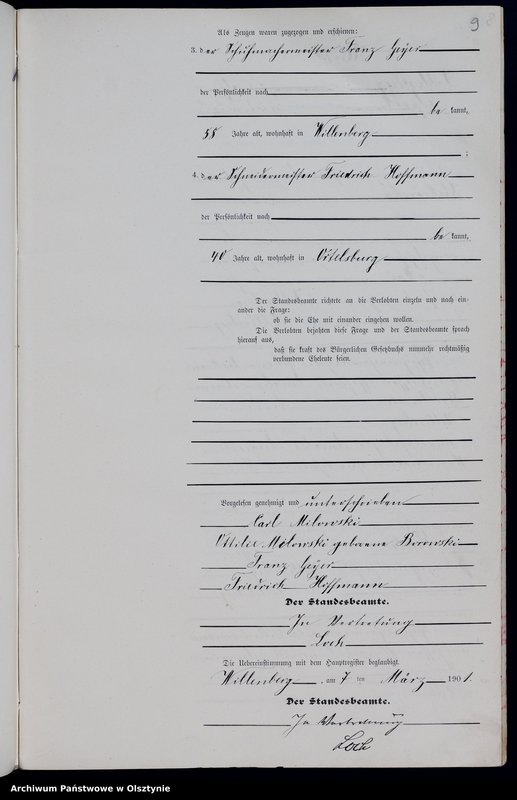 9
Als Zeugen waren zugezogen und erschienen:
3. der Schuhmachermeister Franz Geyer
der Persönlichkeit nach
be kannt,
55 Jahre alt, wohnhaft in Willenberg
;
4. der Schneidermeister Friedrich Hoffmann
der Persönlichkeit nach
be kannt,
40 Jahre alt, wohnhaft in Ortelsburg
Der Standesbeamte richtete an die Verlobten einzeln und nach ein-
ander die Frage:
ob sie die Ehe mit einander eingehen wollen.
Die Verlobten bejahten diese Frage und der Standesbeamte sprach
hierauf aus,
daß sie kraft des Bürgerlichen Gesetzbuchs nunmehr rechtmäßig
verbundene Eheleute seien.
Vorgelesen genehmigt und unterschrieben
Carl Milowski
Ottilie Milowski geborene Borowski
Franz Geyer
Friedrich Hoffmann
Der Standesbeamte.
In Vertretung
Loch
Die Uebereinstimmung mit dem Hauptregister beglaubigt.
Willenberg, am 7 ten März 1901.
Der Standesbeamte.
In Vertretung
Loch
Archiwum Państwowe w Olsztynie